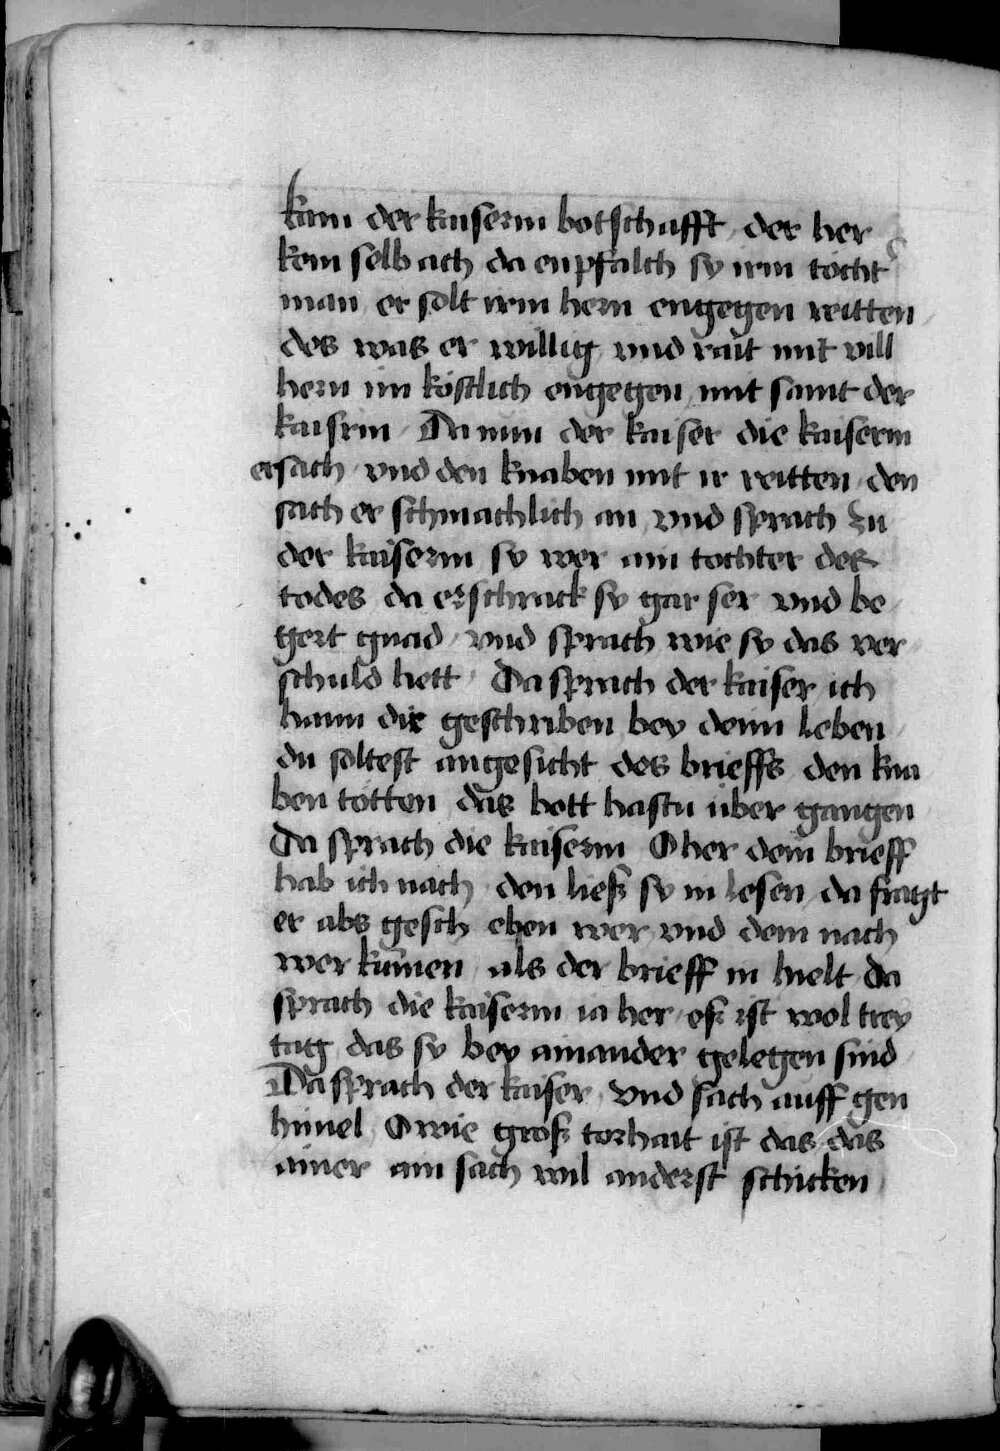 kam der kaiserin botschafft der her
kem selb ach da enpfalch sy irm tocht
man er solt irm hern engegen reitten
des was er willig vnd rait mit vill
hern im köstlich engegen mit samt der
kaisrin Da nun der kaiser die kaiserin
ersach vnd den knaben mit ir reitten den
sach er schmachlich an vnd sprach zu
der kaiserin sy wer ain tochter des
todes da erschrack sy gar ser vnd be
gert gnad vnd sprach wie sy das ver
schuld hett Da sprach der kaiser ich
hann dir geschriben bey deim leben
du soltest angesicht des brieffs den kna
ben totten das bott hastu über gangen
Da sprach die kaiserin O her dem brieff
hab ich nach den ließ sy in lesen da fragt
er abs gesch ehen wer vnd dem nach
wer kumen als der brieff in hielt da
sprach die kaiserin ia her eß ist wol trey
tag das sy bey ainander gelegen sind
Da sprach der kaiser vnd sach auff gen
himel O wie groß torhait ist das das
ainer ain sach wil anderst schicken